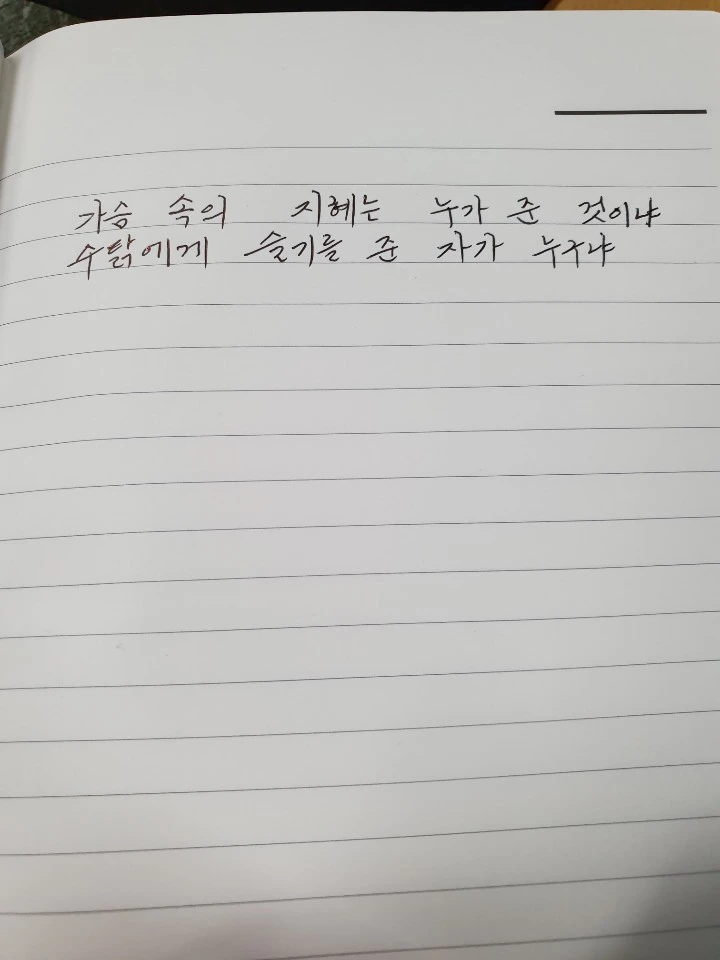 가슴 속의 지혜는 누가 준 것이냐
수탉에게 슬기를 준 자가 누구냐